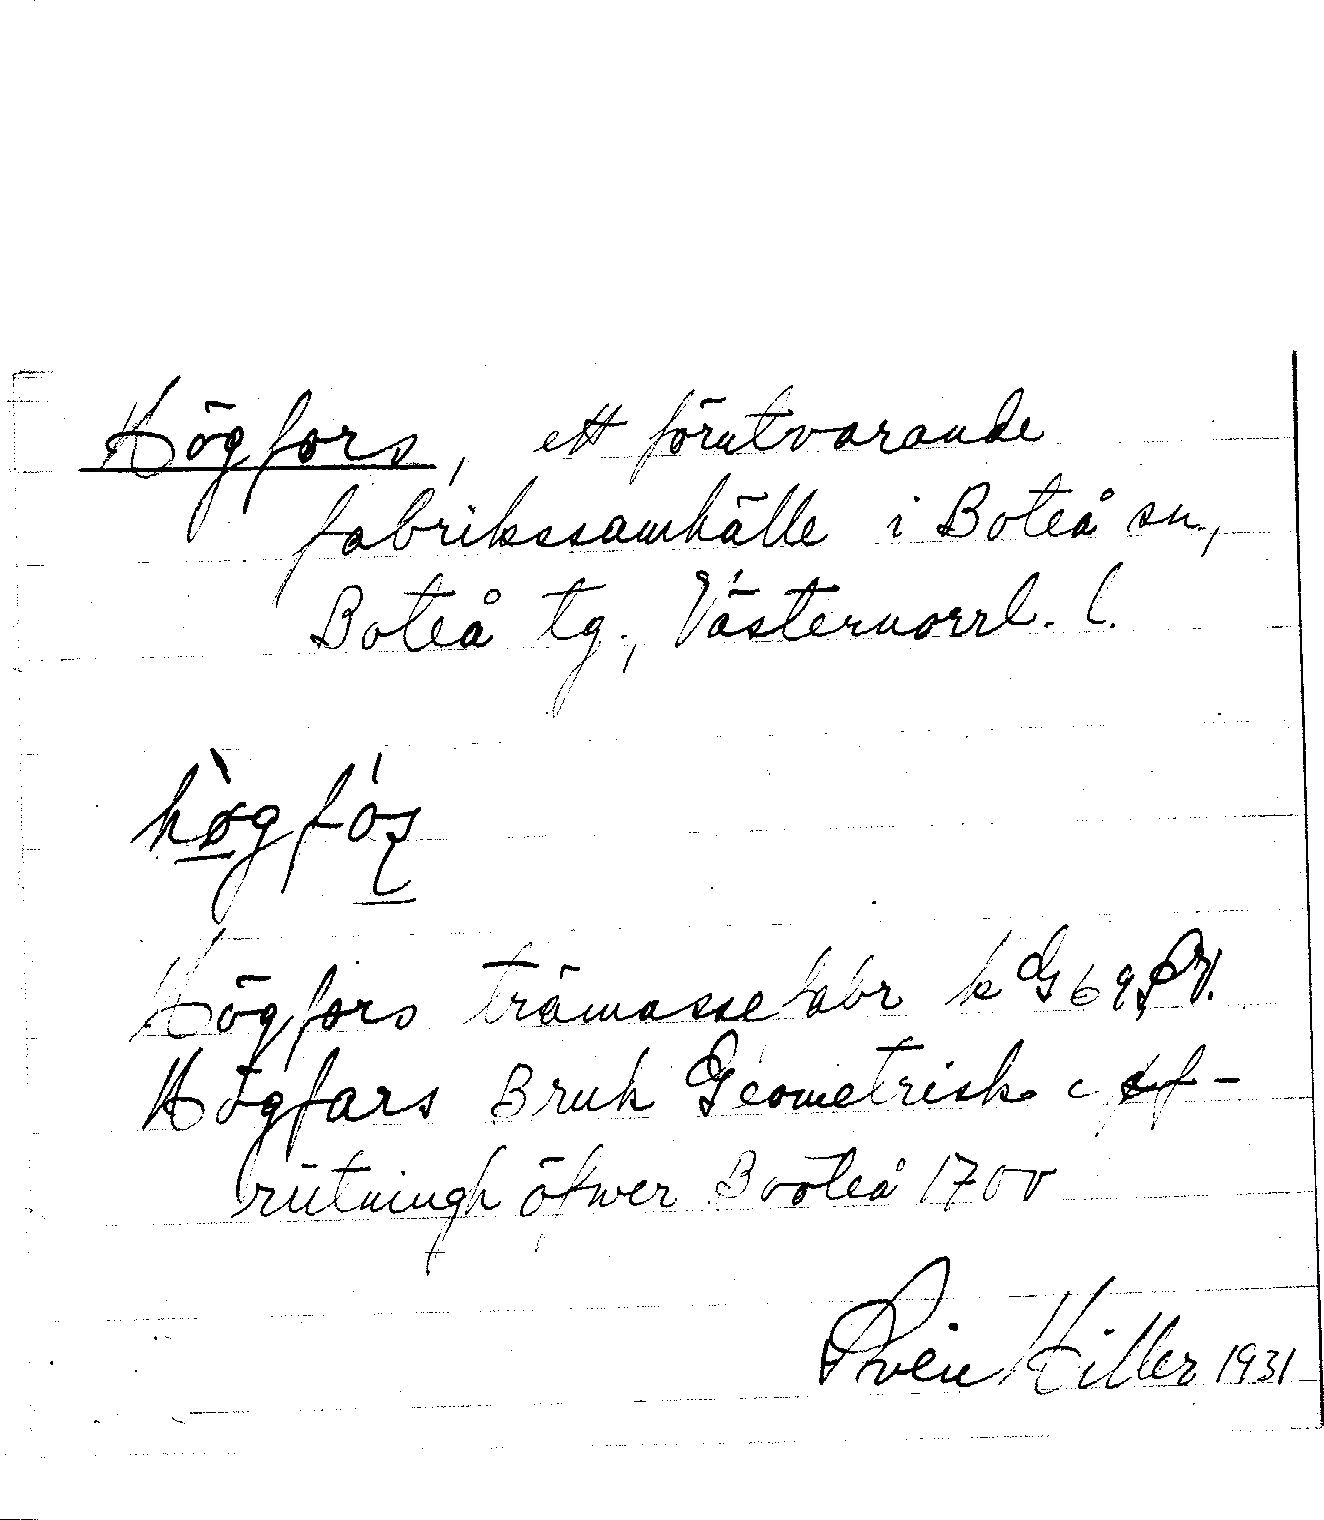 Högfors, ett förutvarande
fabrikssamhälle i Boteå sn.,
Boteå tg., Västernorrl. l.
Högfors trämassefabr k G 69
Högfars Bruk Geometrisk
ritningh öfwer Booteå 1700
Sven Hiller 1931